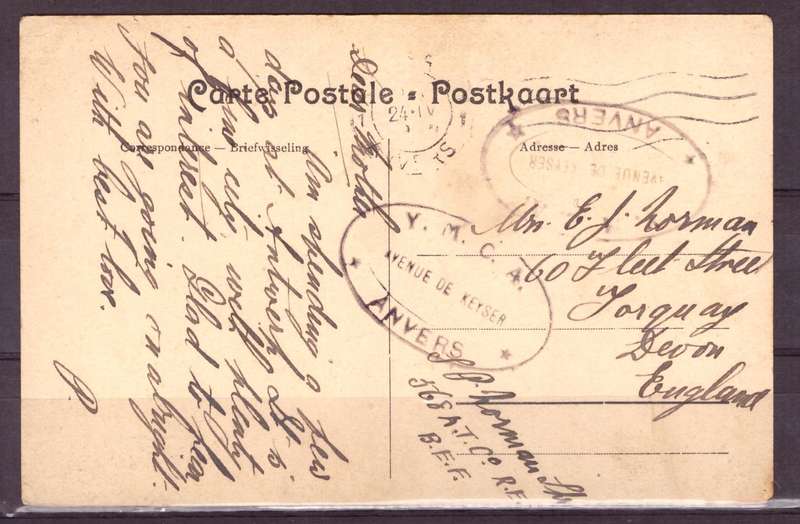 Carte Postale - Postkaart
Correspondance — Briefwisseling
Adresse — Adres
24·IV
ANVERS
AVENUE DE KEYSER
Y. M. C. A.
AVENUE DE KEYSER
ANVERS
Dear Mother
Am spending a few
days at Antwerp. It is
a fine city with plenty
of interest. Glad to hear
you are going on alright.
With best love.
P.
Mrs. E. J. Norman
60 Fleet Street
Torquay
Devon
England
S P Norman
568 A.T. Co R.E.
B.E.F.